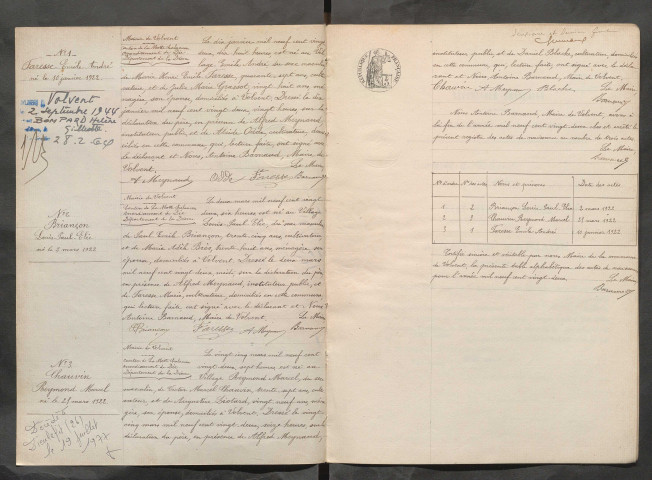 N°1
Faresse Emile André
né le 10 janvier 1922
Volvent
2 Septembre 1944
BOMPARD Hélène
28.2
Mairie de Volvent
Canton de la Motte Chalancon
Arrondissement de Die
Département de la Drôme
Le dix janvier mil neuf cent vingt
deux, heures est né au Vil
lage Emile André, du sexe masculin
de Marie Henri Emile Faresse, quarante sept ans, culti
vateur, et de Julie Marie vingt huit ans
épouse, domiciliés à Volvent. Dressé le dix
janvier mil neuf cent vingt deux heures sur la
déclaration du père, en présence de Alfred Meynaud,
instituteur public, et de Aldide Odde, cultivateur, domi
ciliés en cette commune, qui, lecture faite, ont signé avec
le déclarant et Nous, Antoine Barnaud, Maire de
Volvent.
Le Maire
A Meynaud Odde Faresse Barnaud
N°2
Briançon
Louis Paul Elie
né le 2 mars 1922
Mairie de Volvent
Canton de la Motte Chalancon
Arrondissement de Die
Département de la Drôme
Le deux mars mil neuf cent vingt
deux, heures est né au Village
Louis Paul Elie, du sexe masculin
de Paul Emile Briançon, trente cinq ans, cultivateur
et de Maria Adèle trente huit ans, ménagère, son
épouse, domiciliés à Volvent. Dressé le deux mars
mil neuf cent vingt deux, midi, sur la déclaration du père
en présence de Alfred Meynaud, instituteur public, et
de Faresse Marie, cultivateur, domiciliés en cette commune
qui lecture faite ont signé avec le déclarant et Nous
Antoine Barnaud, Maire de Volvent
Le Maire
Briançon Faresse A Meynaud Barnaud
N°3
Chauvin
Raymond Marcel
né le 25 mars 1922
Décédé
à Dieulefit (26)
le 19 juillet
1977
Mairie de Volvent
Canton de la Motte Chalancon
Arrondissement de Die
Département de la Drôme
Le vingt cinq mars mil neuf cent
vingt deux, sept heures est né au
Village Raymond Marcel, du sexe
masculin, de Marcel Chauvin, trente sept ans, culti
vateur, et de Augustine Liotard, vingt neuf ans, ména
gère, son épouse, domiciliés à Volvent. Dressé le vingt
cinq mars mil neuf cent vingt deux, onze heures sur la
déclaration du père, en présence de Alfred Meynaud,
instituteur public, et de Daniel Peloche, cultivateur, domiciliés
en cette commune, qui, lecture faite, ont signé avec le décla
rant et Nous Antoine Barnaud, Maire de Volvent.
Le Maire
Chauvin A Meynaud Peloche Barnaud
Nous Antoine Barnaud, Maire de Volvent, avons à
la fin de l'année mil neuf cent vingt deux clos et arrêté le
présent registre des actes de naissance au nombre de trois actes
Le Maire,
Barnaud
Noms et prénoms Date des actes
1 2 Briançon Louis Paul Elie 2 mars 1922
2 3 Chauvin Raymond Marcel 25 mars 1922
3 1 Faresse Emile André 10 janvier 1922
Certifié sincère et véritable par nous Maire de la commune
de Volvent, la présente table alphabétique des actes de naissance
pour l'année mil neuf cent vingt deux.
Le Maire
Barnaud